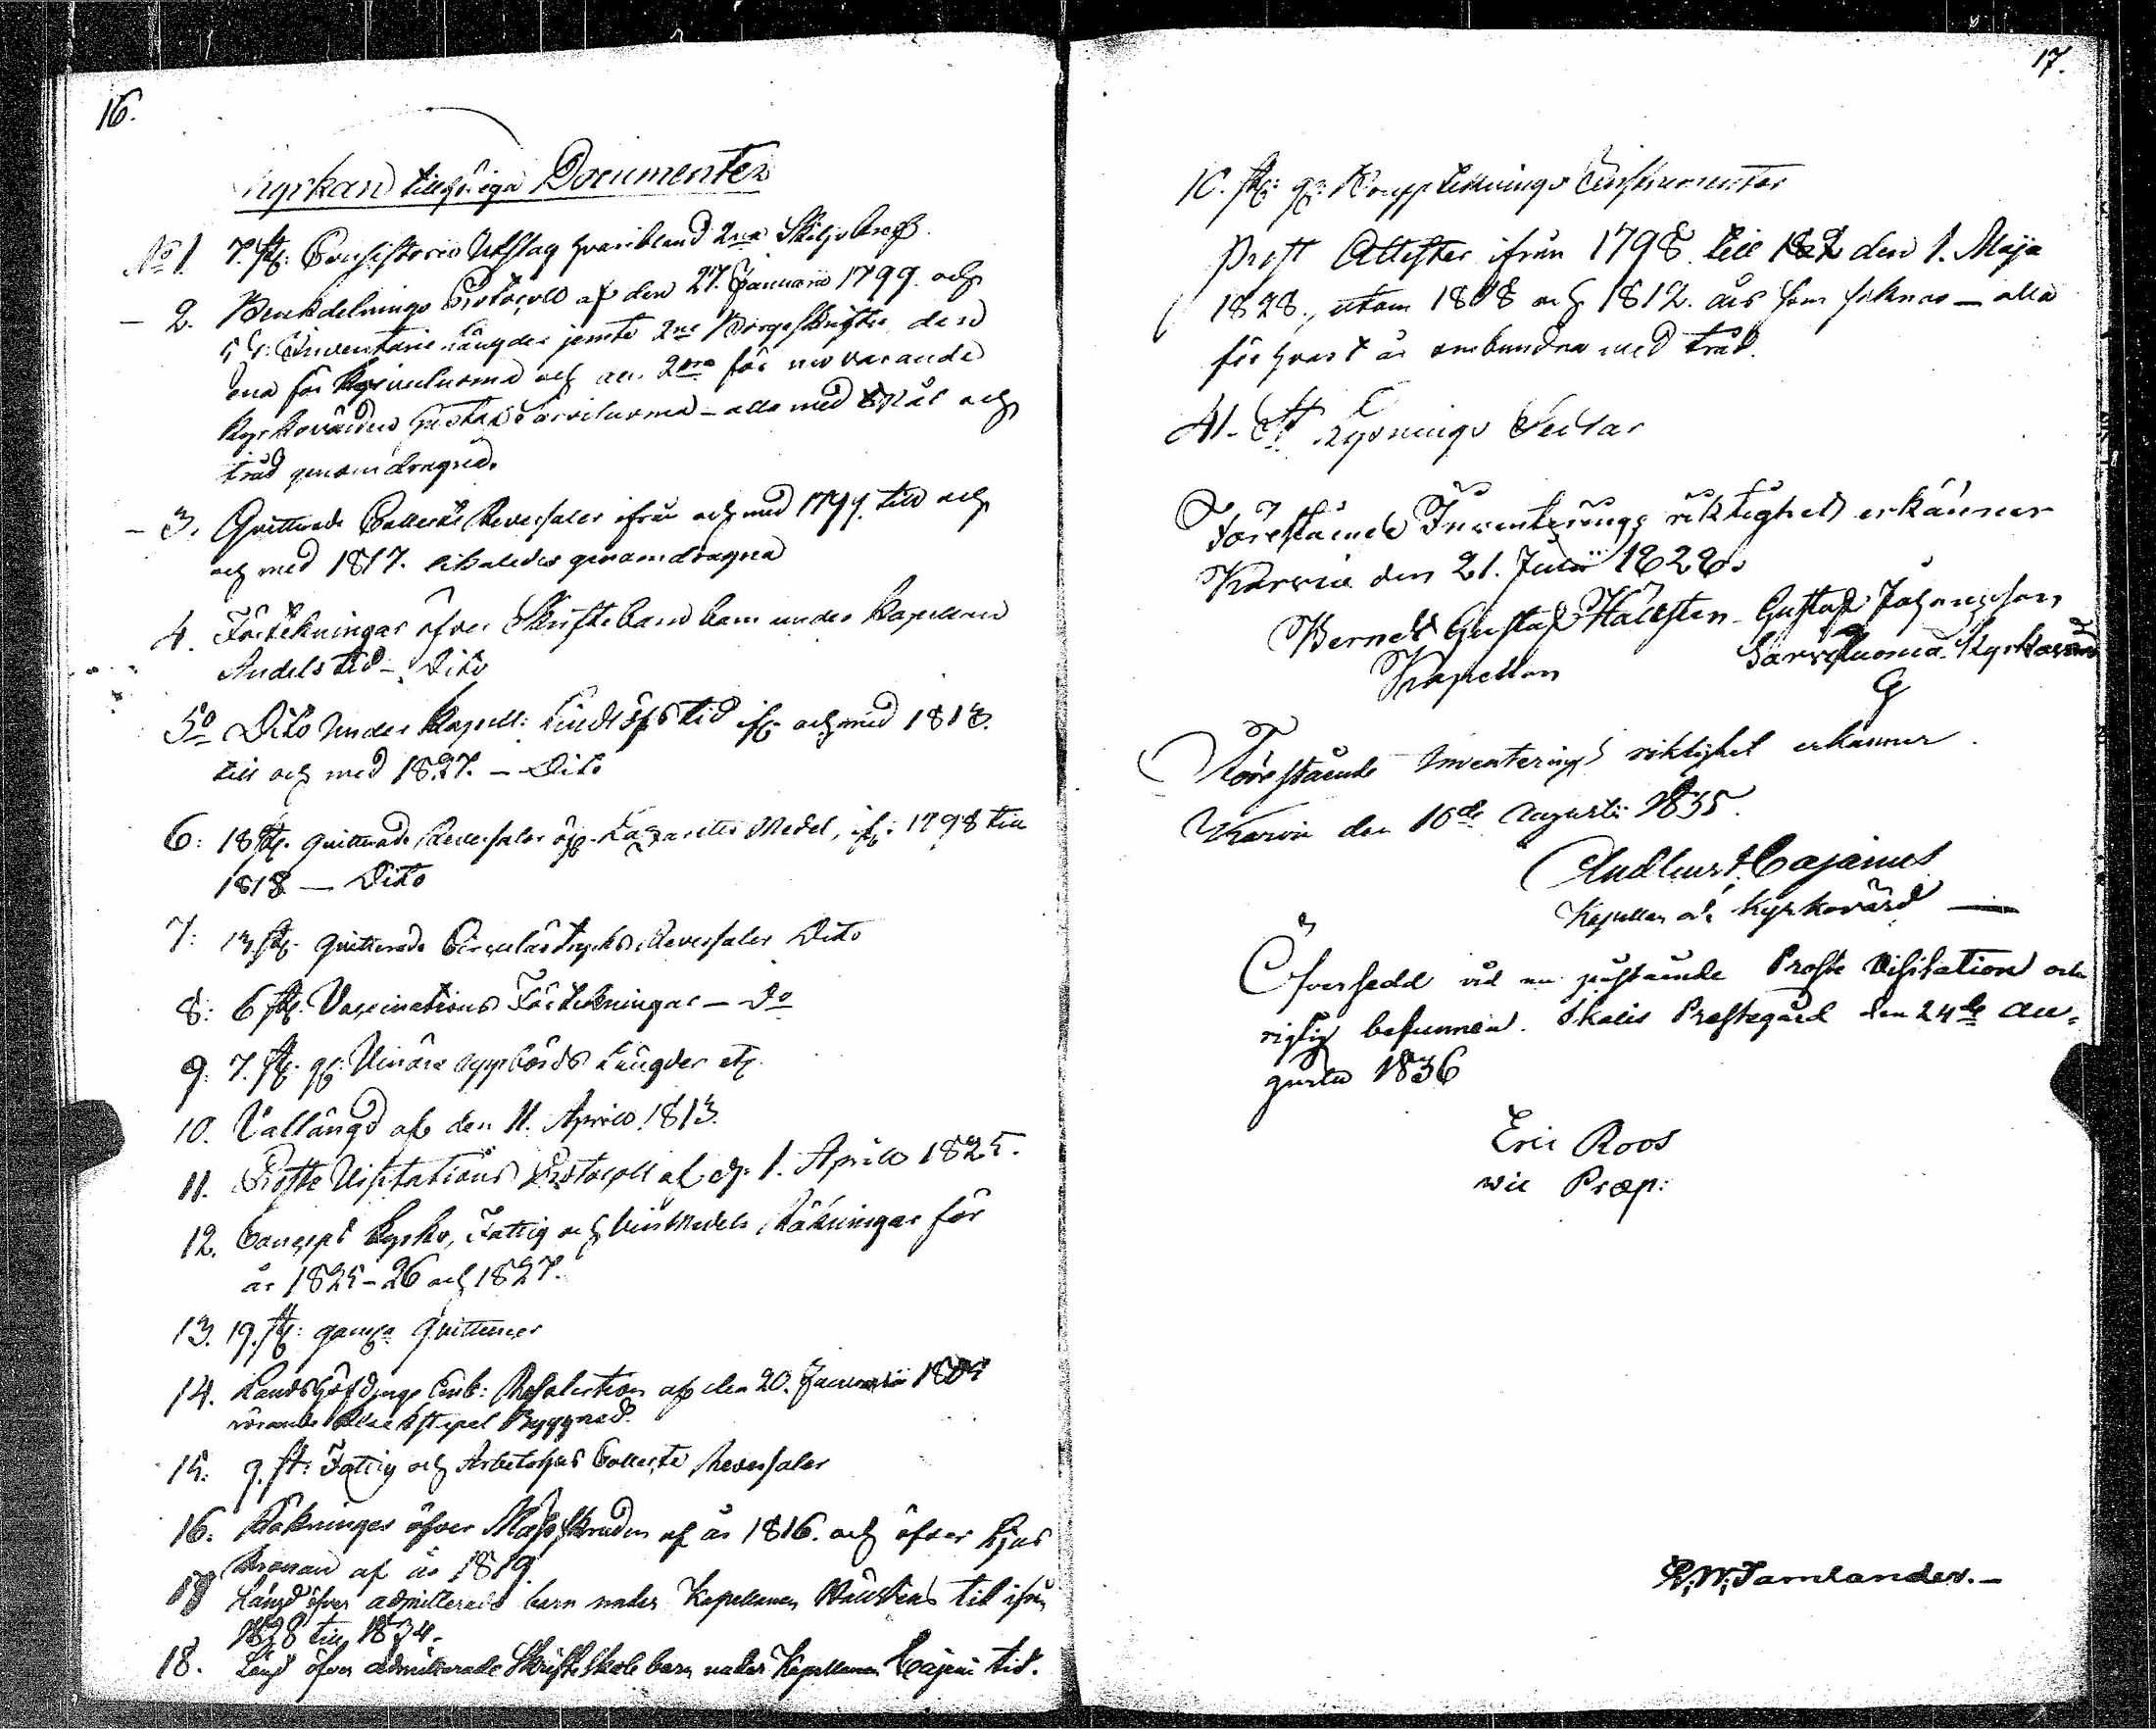 16.
Kyrkan tillhöriga Documenter
No 1. 7. st: Consistorii Utslag hvaribland 2ne Skiljobref.
— 2. Benkdelnings Protocoll af den 27. Januarii 1799. och
5 st: Inventarie Längder jemte 2ne Borgesskrifter den
ena för och den 2dra för nu varande
Kyrkovärden Gustaf Sarviluoma — alla med och
tråd genomdragna.
— 3. Quitterade Collecte Reversaler ifrån och med 1799. till och
och med 1817. likaledes genomdragna
4. Förtekningar öfver Skriftebarn under Kapellan
Andels tid — Dito
5o Dito under Kapell: Lindlöfs tid ifr. och med 1813.
till och med 1827. — Dito
6: 18 st. quitterade Reversaler öfv. Lazaretts Medel, ifr. 1798 till
1818 — Dito
7: 13 st. quitterade Circulairtrycks Reversaler Dito
8: 6 st. Vaccinations Förtekningar — Do
9: 7. st. Uppbörds Längder
10. Vallängd af den 11. Aprill 1813.
11. Proste Visitations Protocoll af d. 1. Aprill 1825.
12. Concept Kyrko, Fattig och Räkningar för
år 1825–26 och 1827.
13. 19. st: gamla Quittencer
14. Landshöfdinge Emb: Resolution af den 20. Januarii
rörande Klockstapel Byggnad.
15: 9. st: Fattig och Arbetshus Collecte Reversaler
16: Räkningar öfver Mässskruden af år 1816. och öfver Ljus
Kronan af år 1819.
17 Längd öfver admitterade barn under Kapellanen Hällstens tid ifrån
1828 till 1834.
18. Längd öfver admitterade Skriftskole barn under Kapellanen Cajani tid.
17.
10. st: Instrumenter
Prest Attester ifrån 1798 till den 1. Maja
1828., utom 1808 och 1812. års som saknas — alla
för hvart år ombundna med tråd.
41. St Lysnings Sedlar
Förestående Inventerings riktighet erkänner
Karvia den 21. Julii 1828.
Berndt Gustaf Hällsten Gustaf Johansson
Kapellan Sarviluoma Kyrkovärd
G
Förestående Inventerings riktighet erkänner.
Karvia den 10de Augusti 1835.
And Cajanus
Kapellan och Kyrkovärd —
Öfversedd vid nu påstående Proste Visitation och
riktig befunnen. Ikalis Prestegård den 24de Au-
gusti 1836
Eric Roos
vic Præp:
Tamlander. —